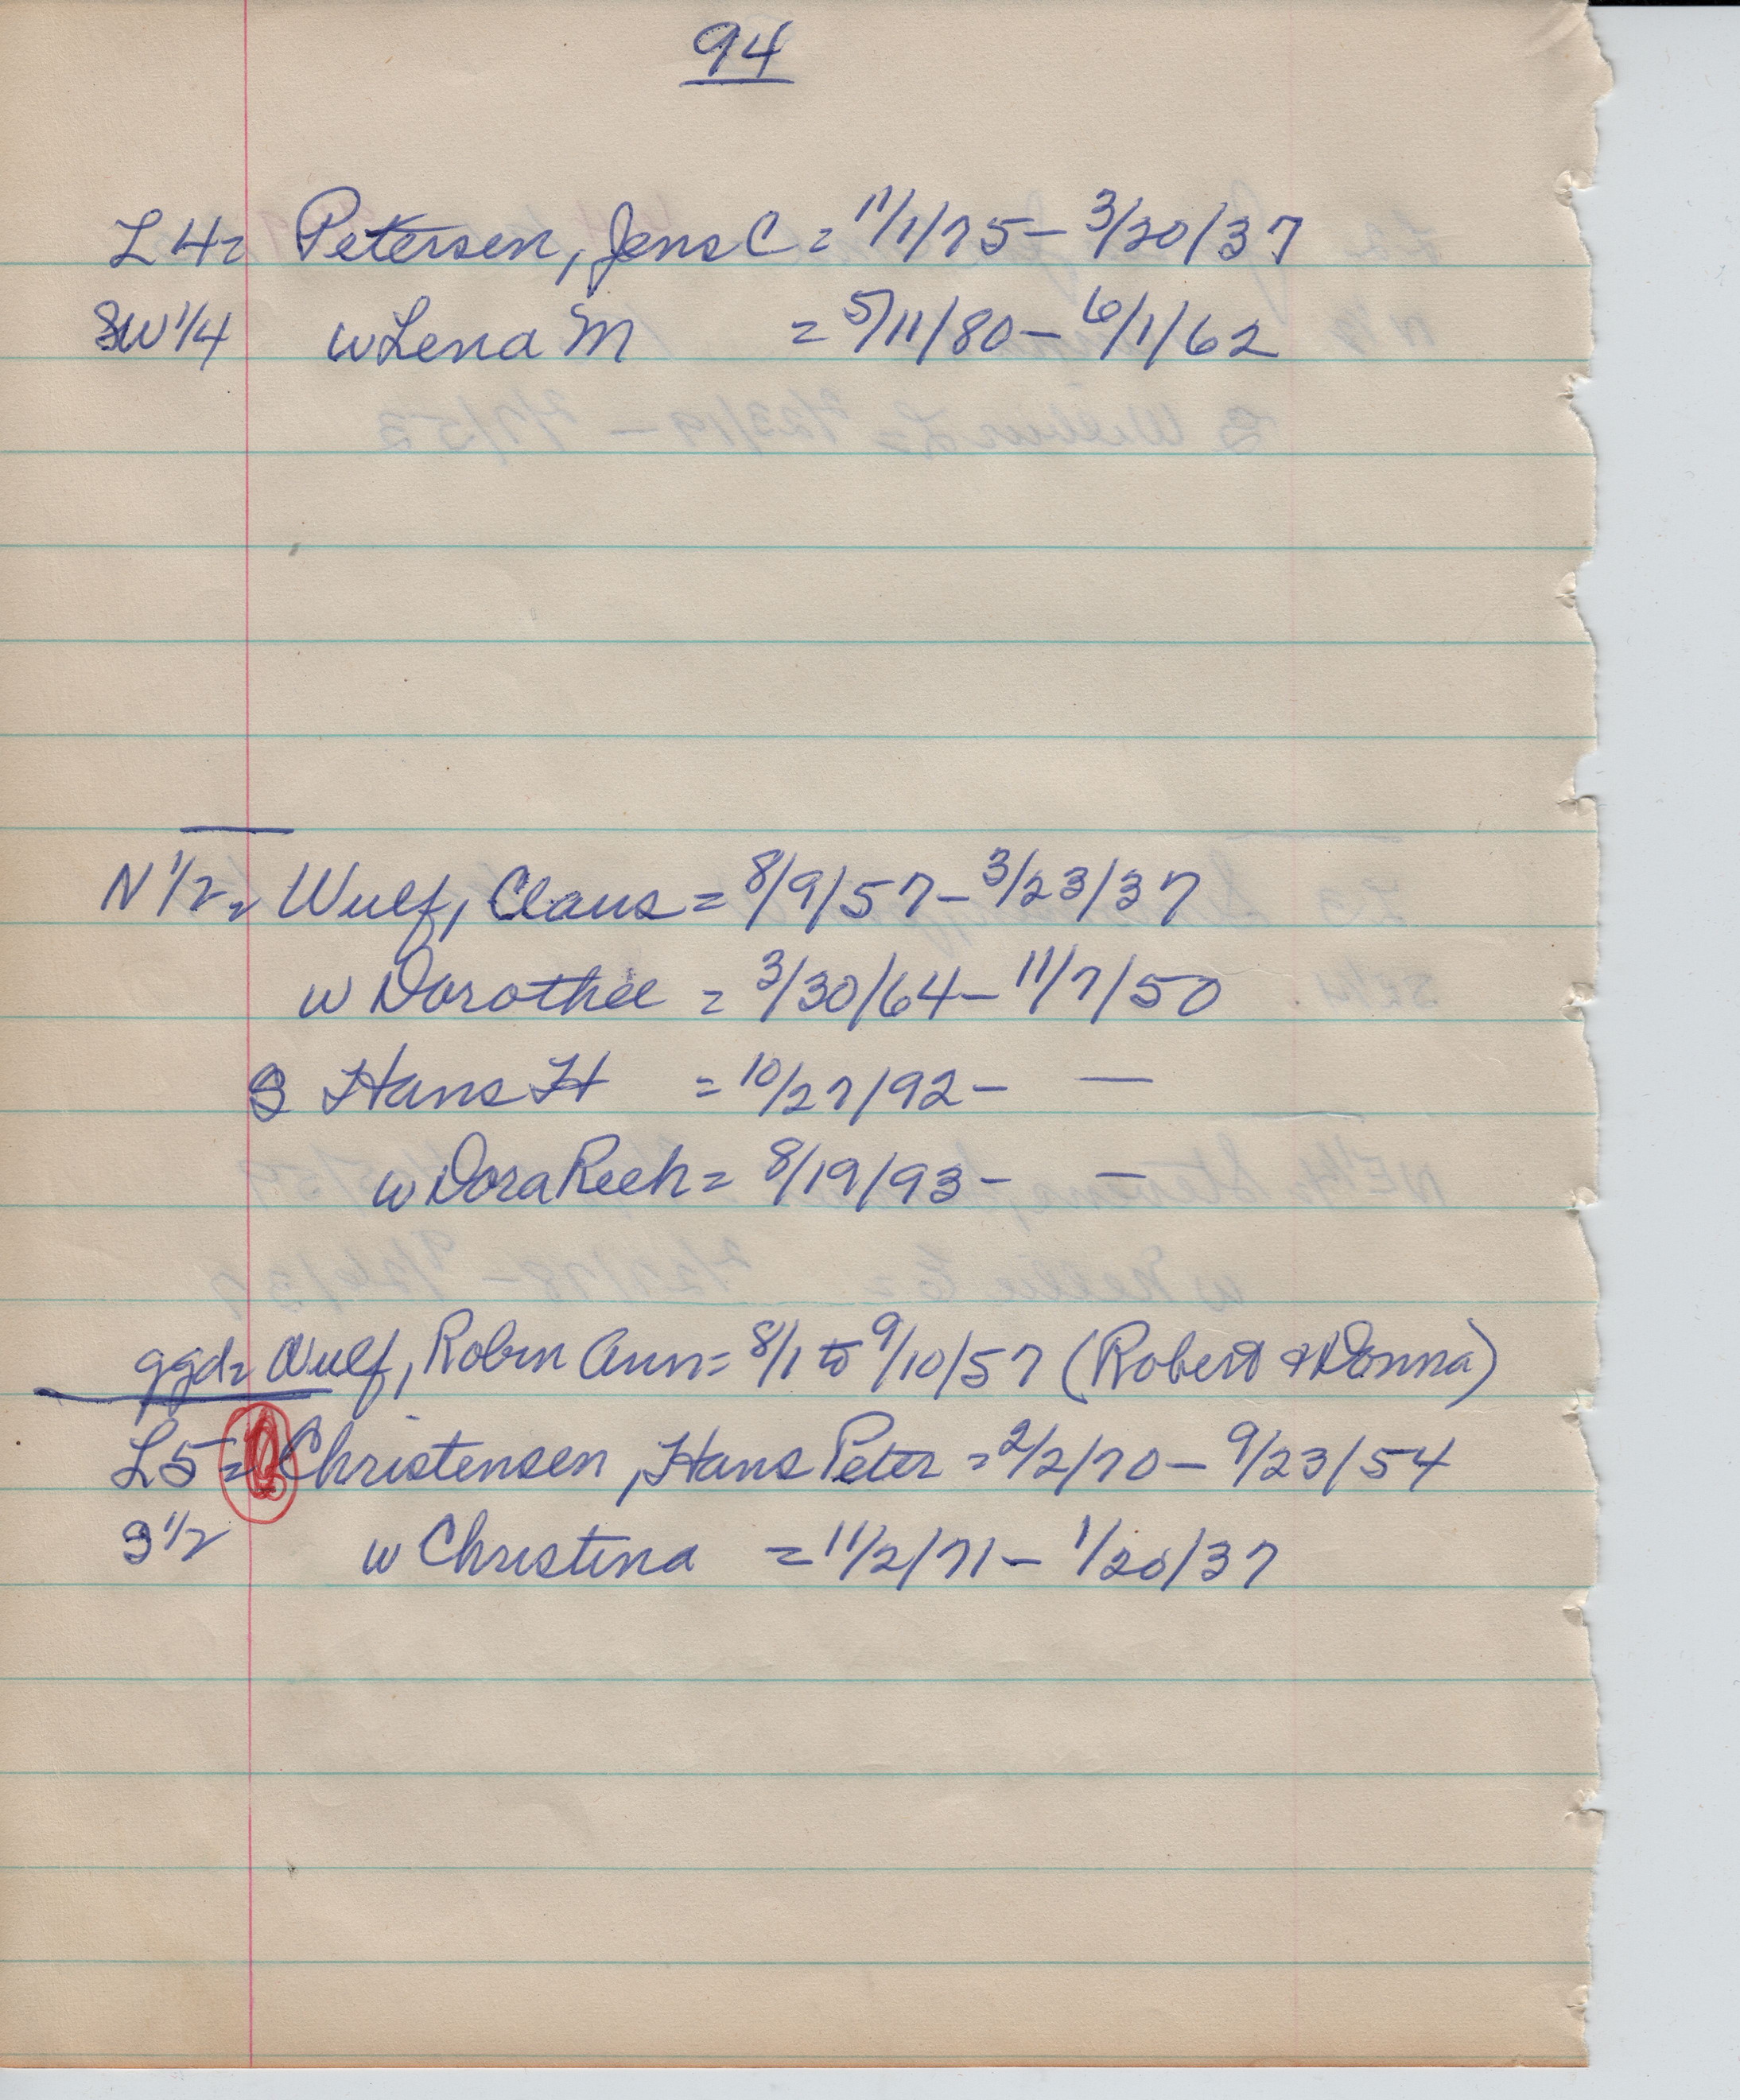 94
L4= Petersen, Jens C = 11/1/75 - 3/20/37
SW 1/4 w Lena M = 5/11/80 - 6/1/62
N 1/2 = Wulf, Claus = 8/9/57 - 3/23/37
w Dorothee = 3/30/64 - 11/7/50
S Hans H = 10/27/92 - —
w Dora Reeh = 8/19/93 - —
ggd= Wulf, Robin Ann = 8/1 to 9/10/57 (Robert & Donna)
L5 = Christensen, Hans Peter = 2/2/70 - 9/23/54
S 1/2 w Christina = 11/2/71 - 1/20/37